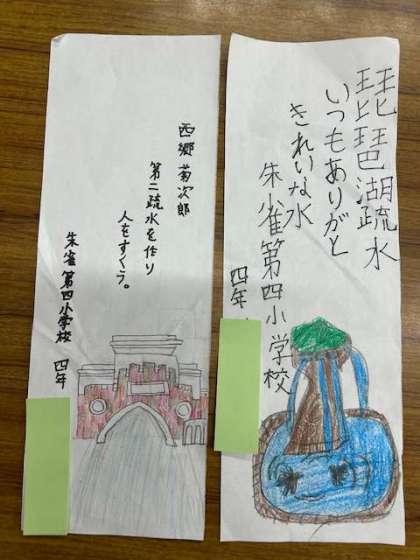 西郷菊次郎
第二疏水を作り
人をすくう。
朱雀第四小学校 四年
琵琶湖疏水
いつもありがと
きれいな水
朱雀第四小学校
四年